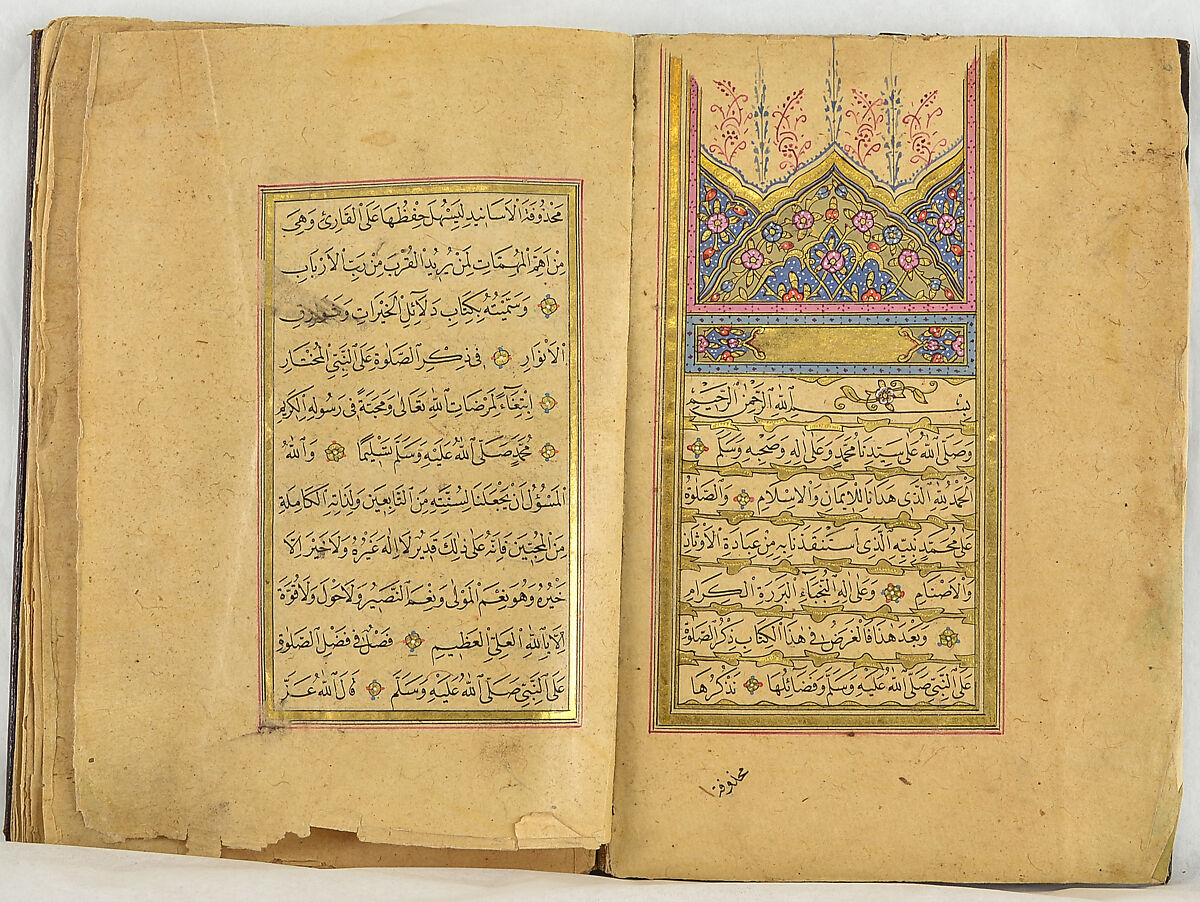 بِسْمِ ٱللّٰهِ ٱلرَّحْمٰنِ ٱلرَّحِيمِ
وَصَلَّى ٱللّٰهُ عَلٰى سَيِّدِنَا مُحَمَّدٍ وَعَلٰى اٰلِهِ وَصَحْبِهِ وَسَلَّمَ
اَلْحَمْدُ لِلّٰهِ ٱلَّذِى هَدَانَا لِلْاِيمَانِ وَالْاِسْلَامِ وَالصَّلٰوةُ
عَلٰى مُحَمَّدٍ نَبِيِّهِ ٱلَّذِى اسْتَنْقَذَنَا بِهِ مِنْ عِبَادَةِ الْاَوْثَانِ
وَالْاَصْنَامِ وَعَلٰى اٰلِهِ النُّجَبَاءِ الْبَرَرَةِ الْكِرَامِ
وَبَعْدَ هٰذَا فَالْغَرَضُ فِى هٰذَا الْكِتَابِ ذِكْرُ الصَّلٰوةِ
عَلَى النَّبِىِّ صَلَّى ٱللّٰهُ عَلَيْهِ وَسَلَّمَ وَفَضَائِلُهَا نَذْكُرُهَا
محذوفة ا
مَحْذُوفَةَ الْاَسَانِيدِ لِيَسْهُلَ حِفْظُهَا عَلَى الْقَارِئِ وَهِىَ
مِنْ اَهَمِّ الْمُهِمَّاتِ لِمَنْ يُرِيدُ الْقُرْبَ مِنْ رَبِّ الْاَرْبَابِ
وَسَمَّيْتُهُ بِكِتَابِ دَلَائِلِ الْخَيْرَاتِ وَشَوَارِقِ
الْاَنْوَارِ فِى ذِكْرِ الصَّلٰوةِ عَلَى النَّبِىِّ الْمُخْتَارِ
اِبْتِغَاءً لِمَرْضَاتِ ٱللّٰهِ تَعَالٰى وَمَحَبَّةً فِى رَسُولِهِ الْكَرِيمِ
مُحَمَّدٍ صَلَّى ٱللّٰهُ عَلَيْهِ وَسَلَّمَ تَسْلِيمًا وَٱللّٰهُ
الْمَسْؤُلُ اَنْ يَجْعَلَنَا لِسُنَّتِهِ مِنَ التَّابِعِينَ وَلِذَاتِهِ الْكَامِلَةِ
مِنَ الْمُحِبِّينَ فَاِنَّهُ عَلٰى ذٰلِكَ قَدِيرٌ لَا اِلٰهَ غَيْرُهُ وَلَا خَيْرَ اِلَّا
خَيْرُهُ وَهُوَ نِعْمَ الْمَوْلٰى وَنِعْمَ النَّصِيرُ وَلَا حَوْلَ وَلَا قُوَّةَ
اِلَّا بِٱللّٰهِ الْعَلِىِّ الْعَظِيمِ فَصْلٌ فِى فَضْلِ الصَّلٰوةِ
عَلَى النَّبِىِّ صَلَّى ٱللّٰهُ عَلَيْهِ وَسَلَّمَ قَالَ ٱللّٰهُ عَزَّ